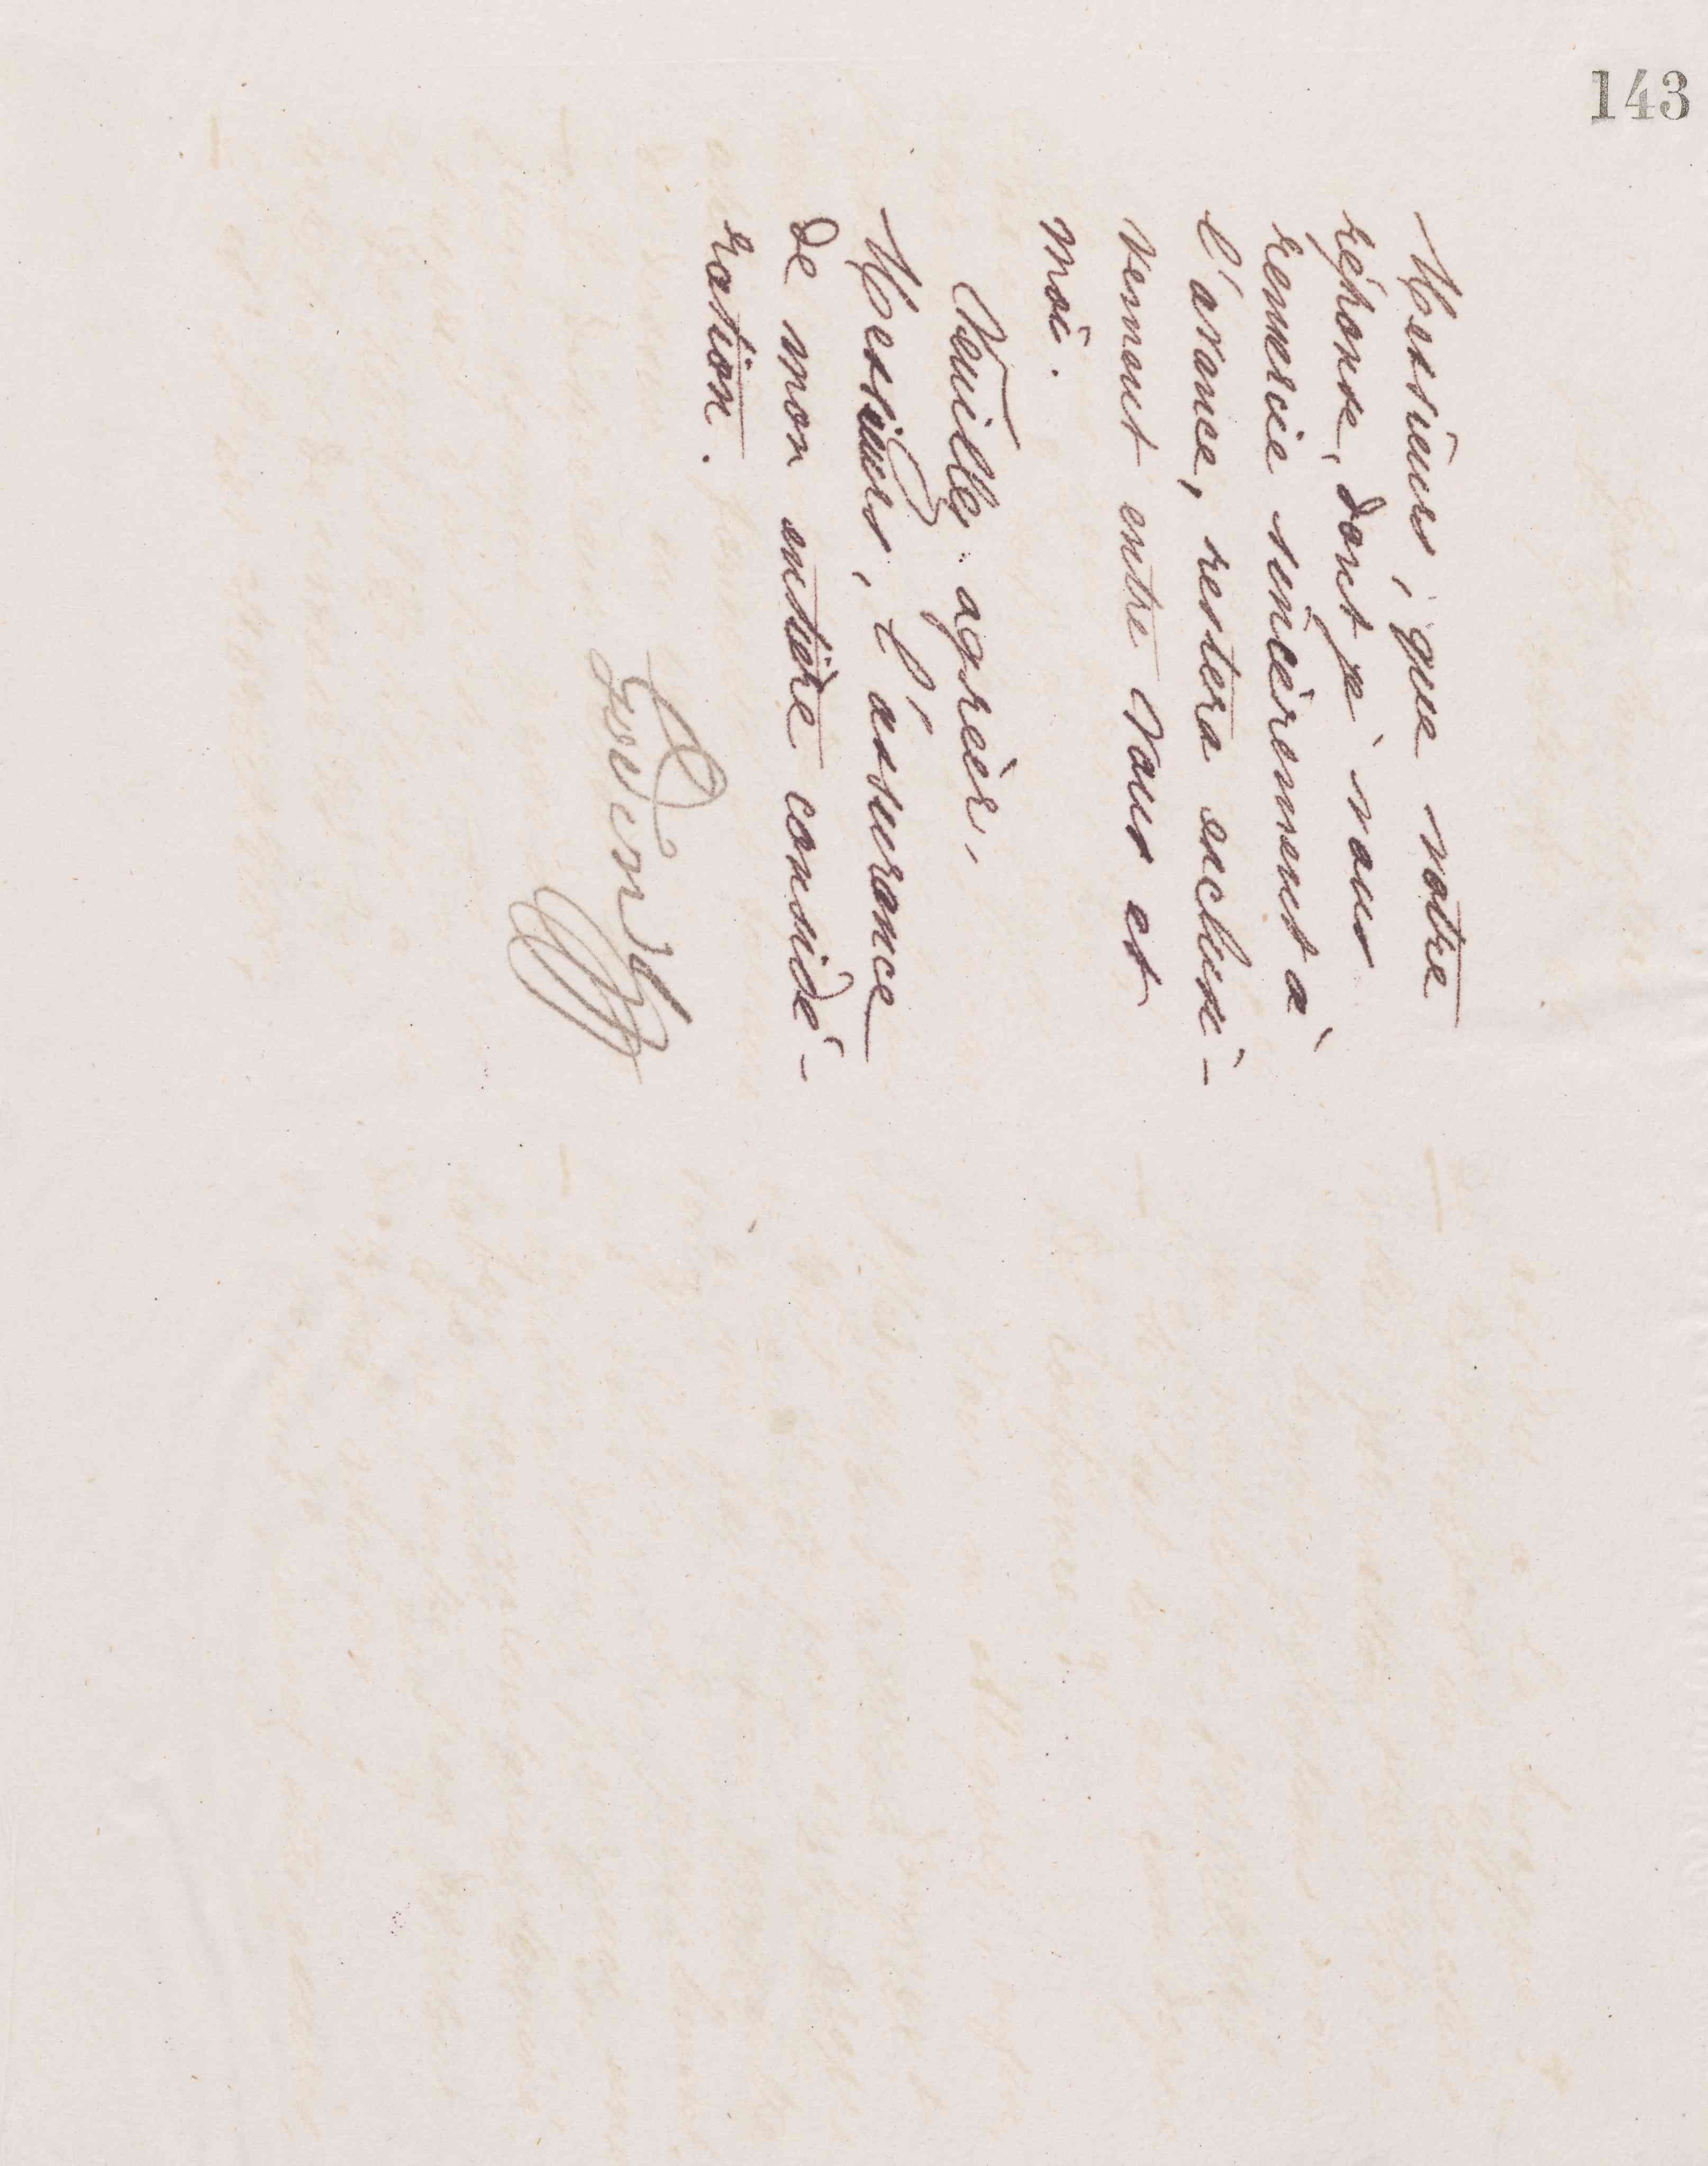 143
Messieurs, que votre
réponse, dont je vous
remercie sincèrement à
l'avance, restera exclusi-
vement entre Vous et
moi.
Veuillez agréer,
Messieurs, l'assurance
de mon entière considé-
ration.